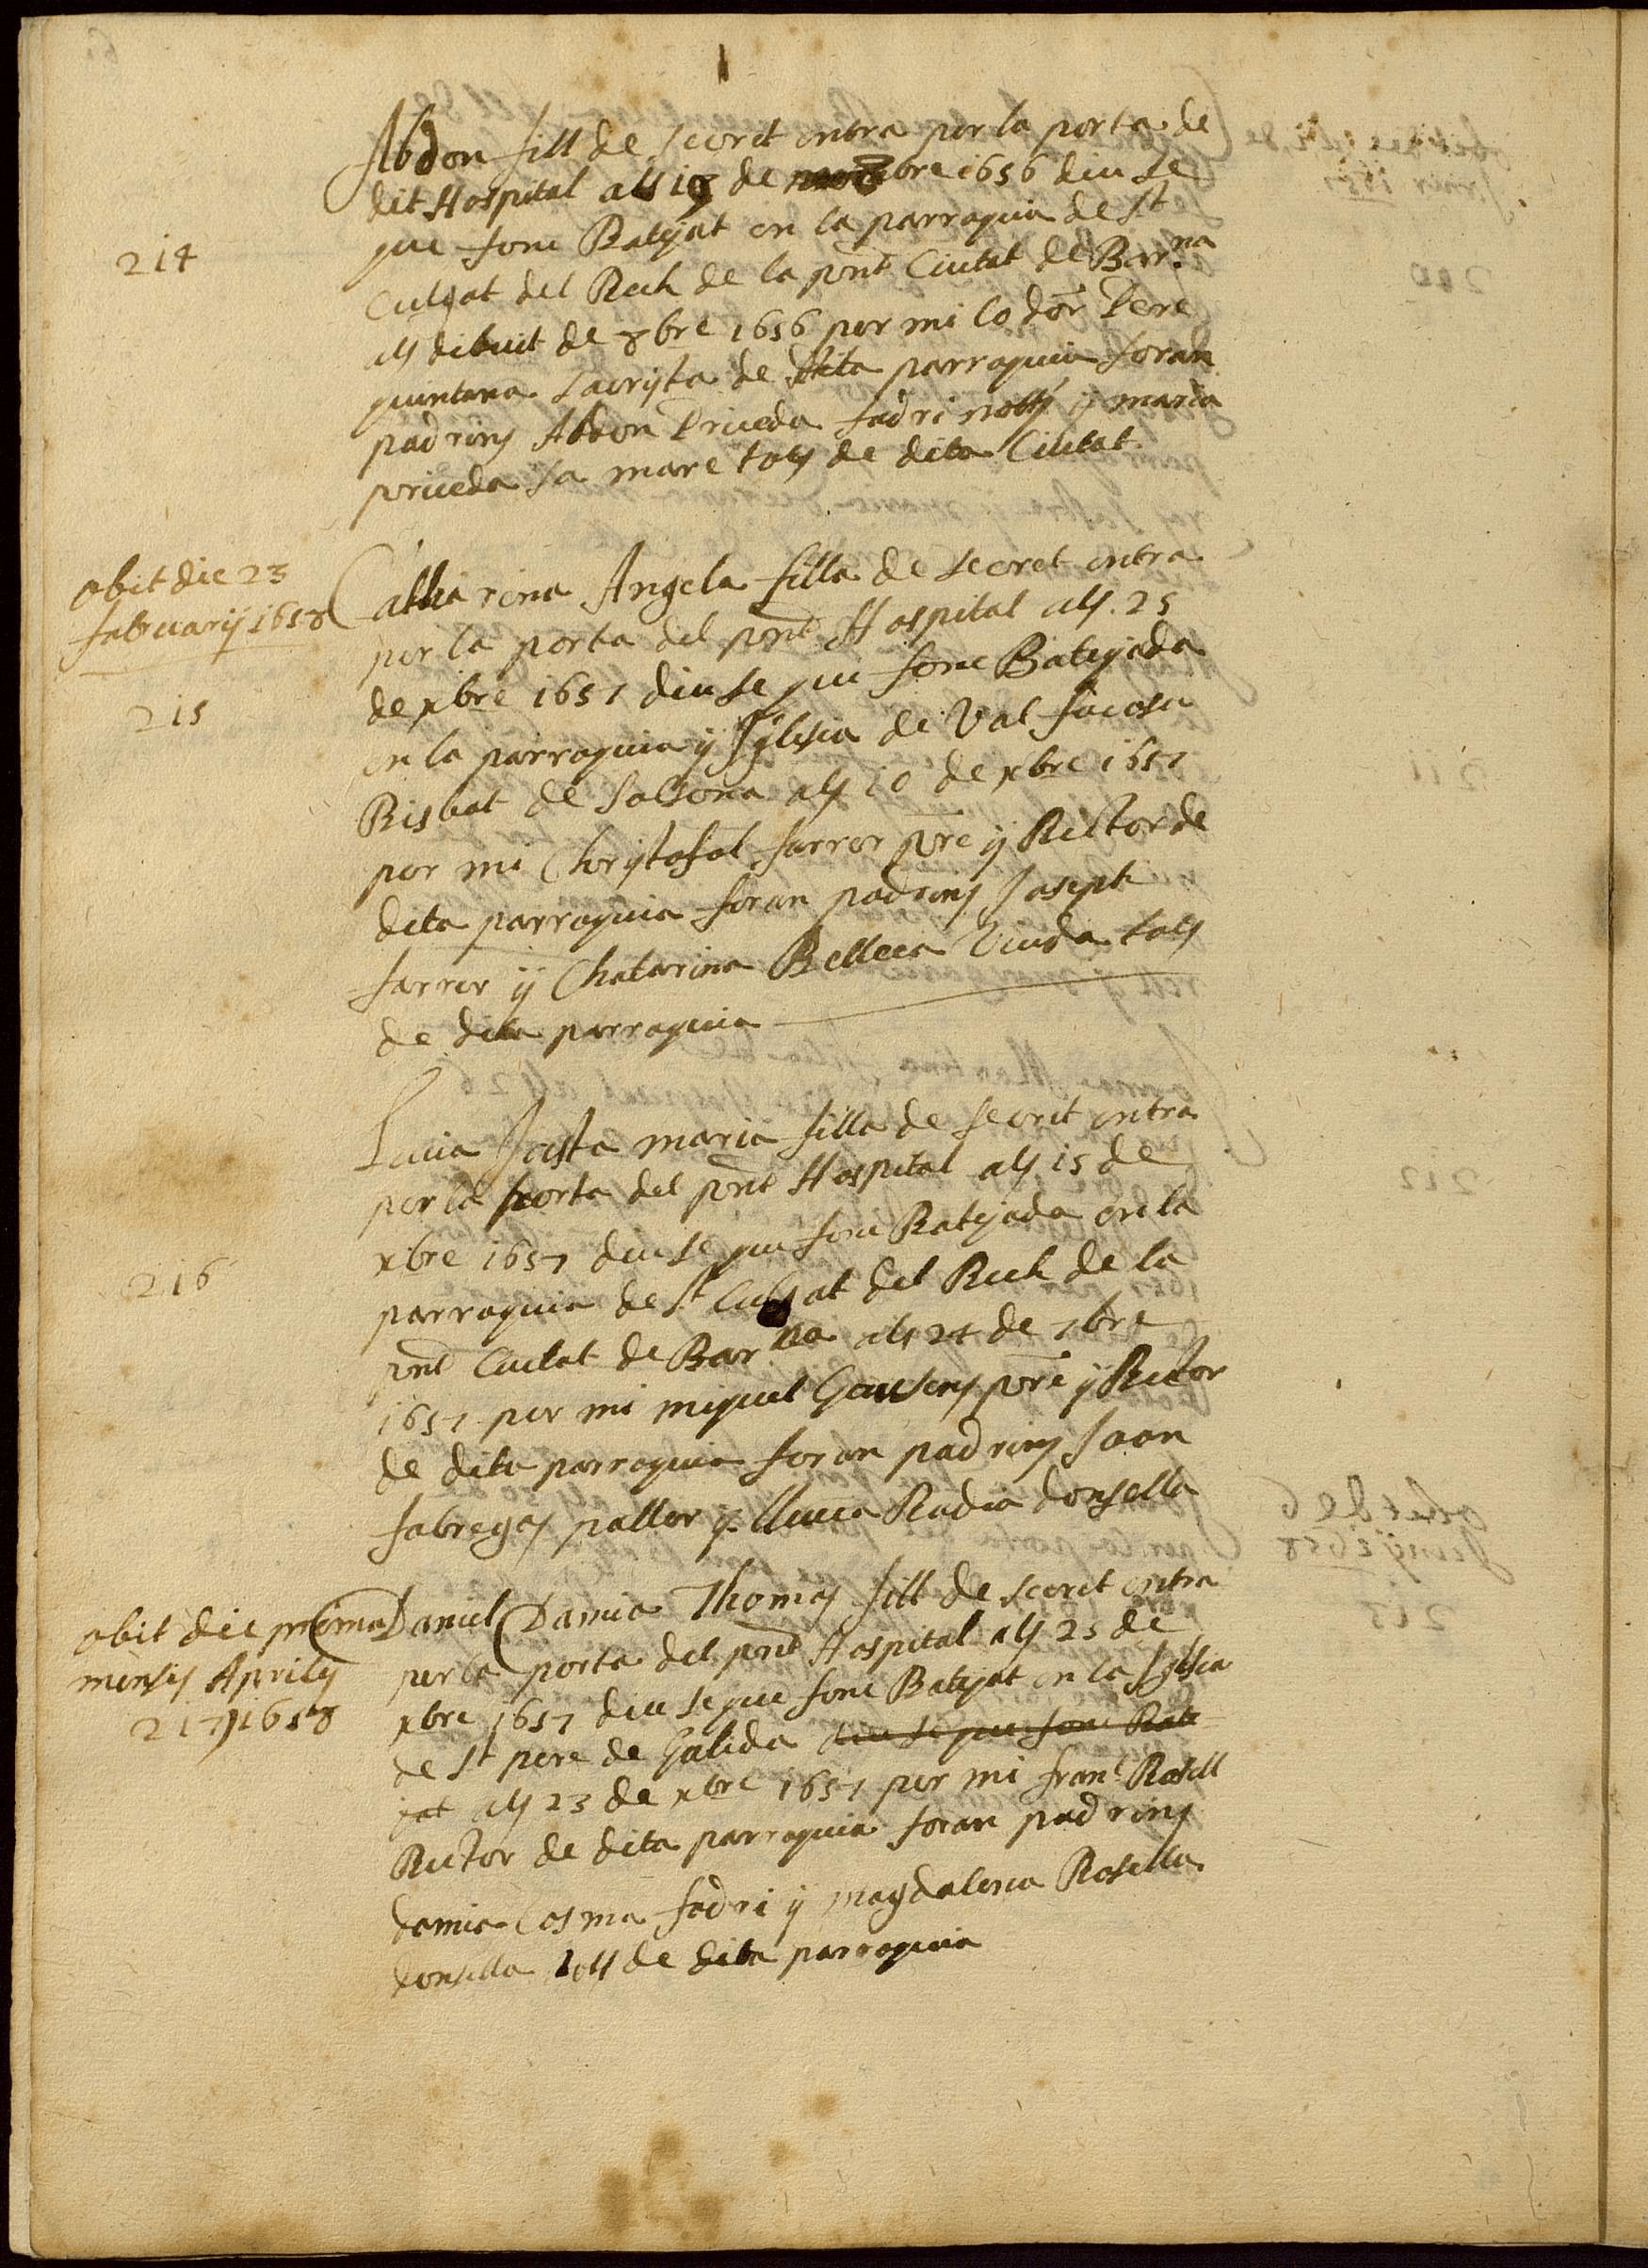 Abdon fill de secret entra per la porta de
dit Hospital als 18 de bre 1656 diu se
214
que fonc Batejat en la parroquia de St
Culgat del Rech de la pnt Ciutat de Barna
als dibuit de 8bre 1656 per mi lo dor Pere
quintana Sacrista de dita parroquia foran
padrins Abdon Priveda fadri notts y maria
priveda sa mare tots de dita Ciutat
obit die 23
februarij 1658
215
Catharina Angela filla de secret entra
per la porta del pnt Hospital als 25
de xbre 1657 diu se que fonc Batejada
en la parroquia y Iglesia de Val
Bisbat de Solsona als 10 de xbre 1657
per mi Christofol farrer pre y Rector de
dita parroquia foran padrins Joseph
farrer y Chatarina Bellera Viuda tots
de dita parroquia
Lucia Justa maria filla de secret entra
per la porta del pnt Hospital als 15 de
216
xbre 1657 diu se que fonc Batejada en la
parroquia de St Culgat del Rech de la
pnt Ciutat de Barna als 24 de 7bre
1657 per mi miquel Gausens pre y Rector
de dita parroquia foran padrins Joan
fabregas paller y llucia Rudia donsella
obit die prima
mensis Aprilis
217 1658
Daniel Damia Thomas fill de secret entra
per la porta del pnt Hospital als 25 de
xbre 1657 diu se que fonc Batejat en la Iglesia
de St pere de Galida diu se que fonc Bate
jat als 23 de xbre 1657 per mi franc Rosell
Rector de dita parroquia foran padrins
damia Cosma fadri y magdalena Rosella
donsella tots de dita parroquia